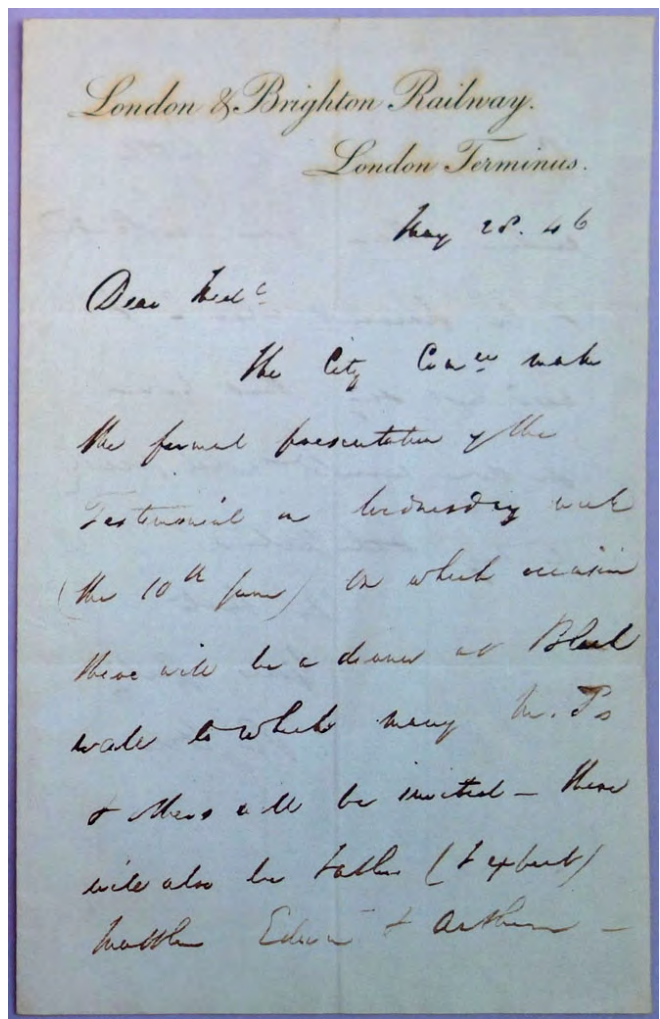 London & Brighton Railway.
London Terminus.
May 28. 46
Dear Fredc
The City Comee make
the formal presentation of the
Testimonial on Wednesday week
(the 10th June) On which occasion
there will be a dinner at Black
wall to which many M.Ps
& others will be invited – there
will also be Father (I expect)
Edwin & Arthur –